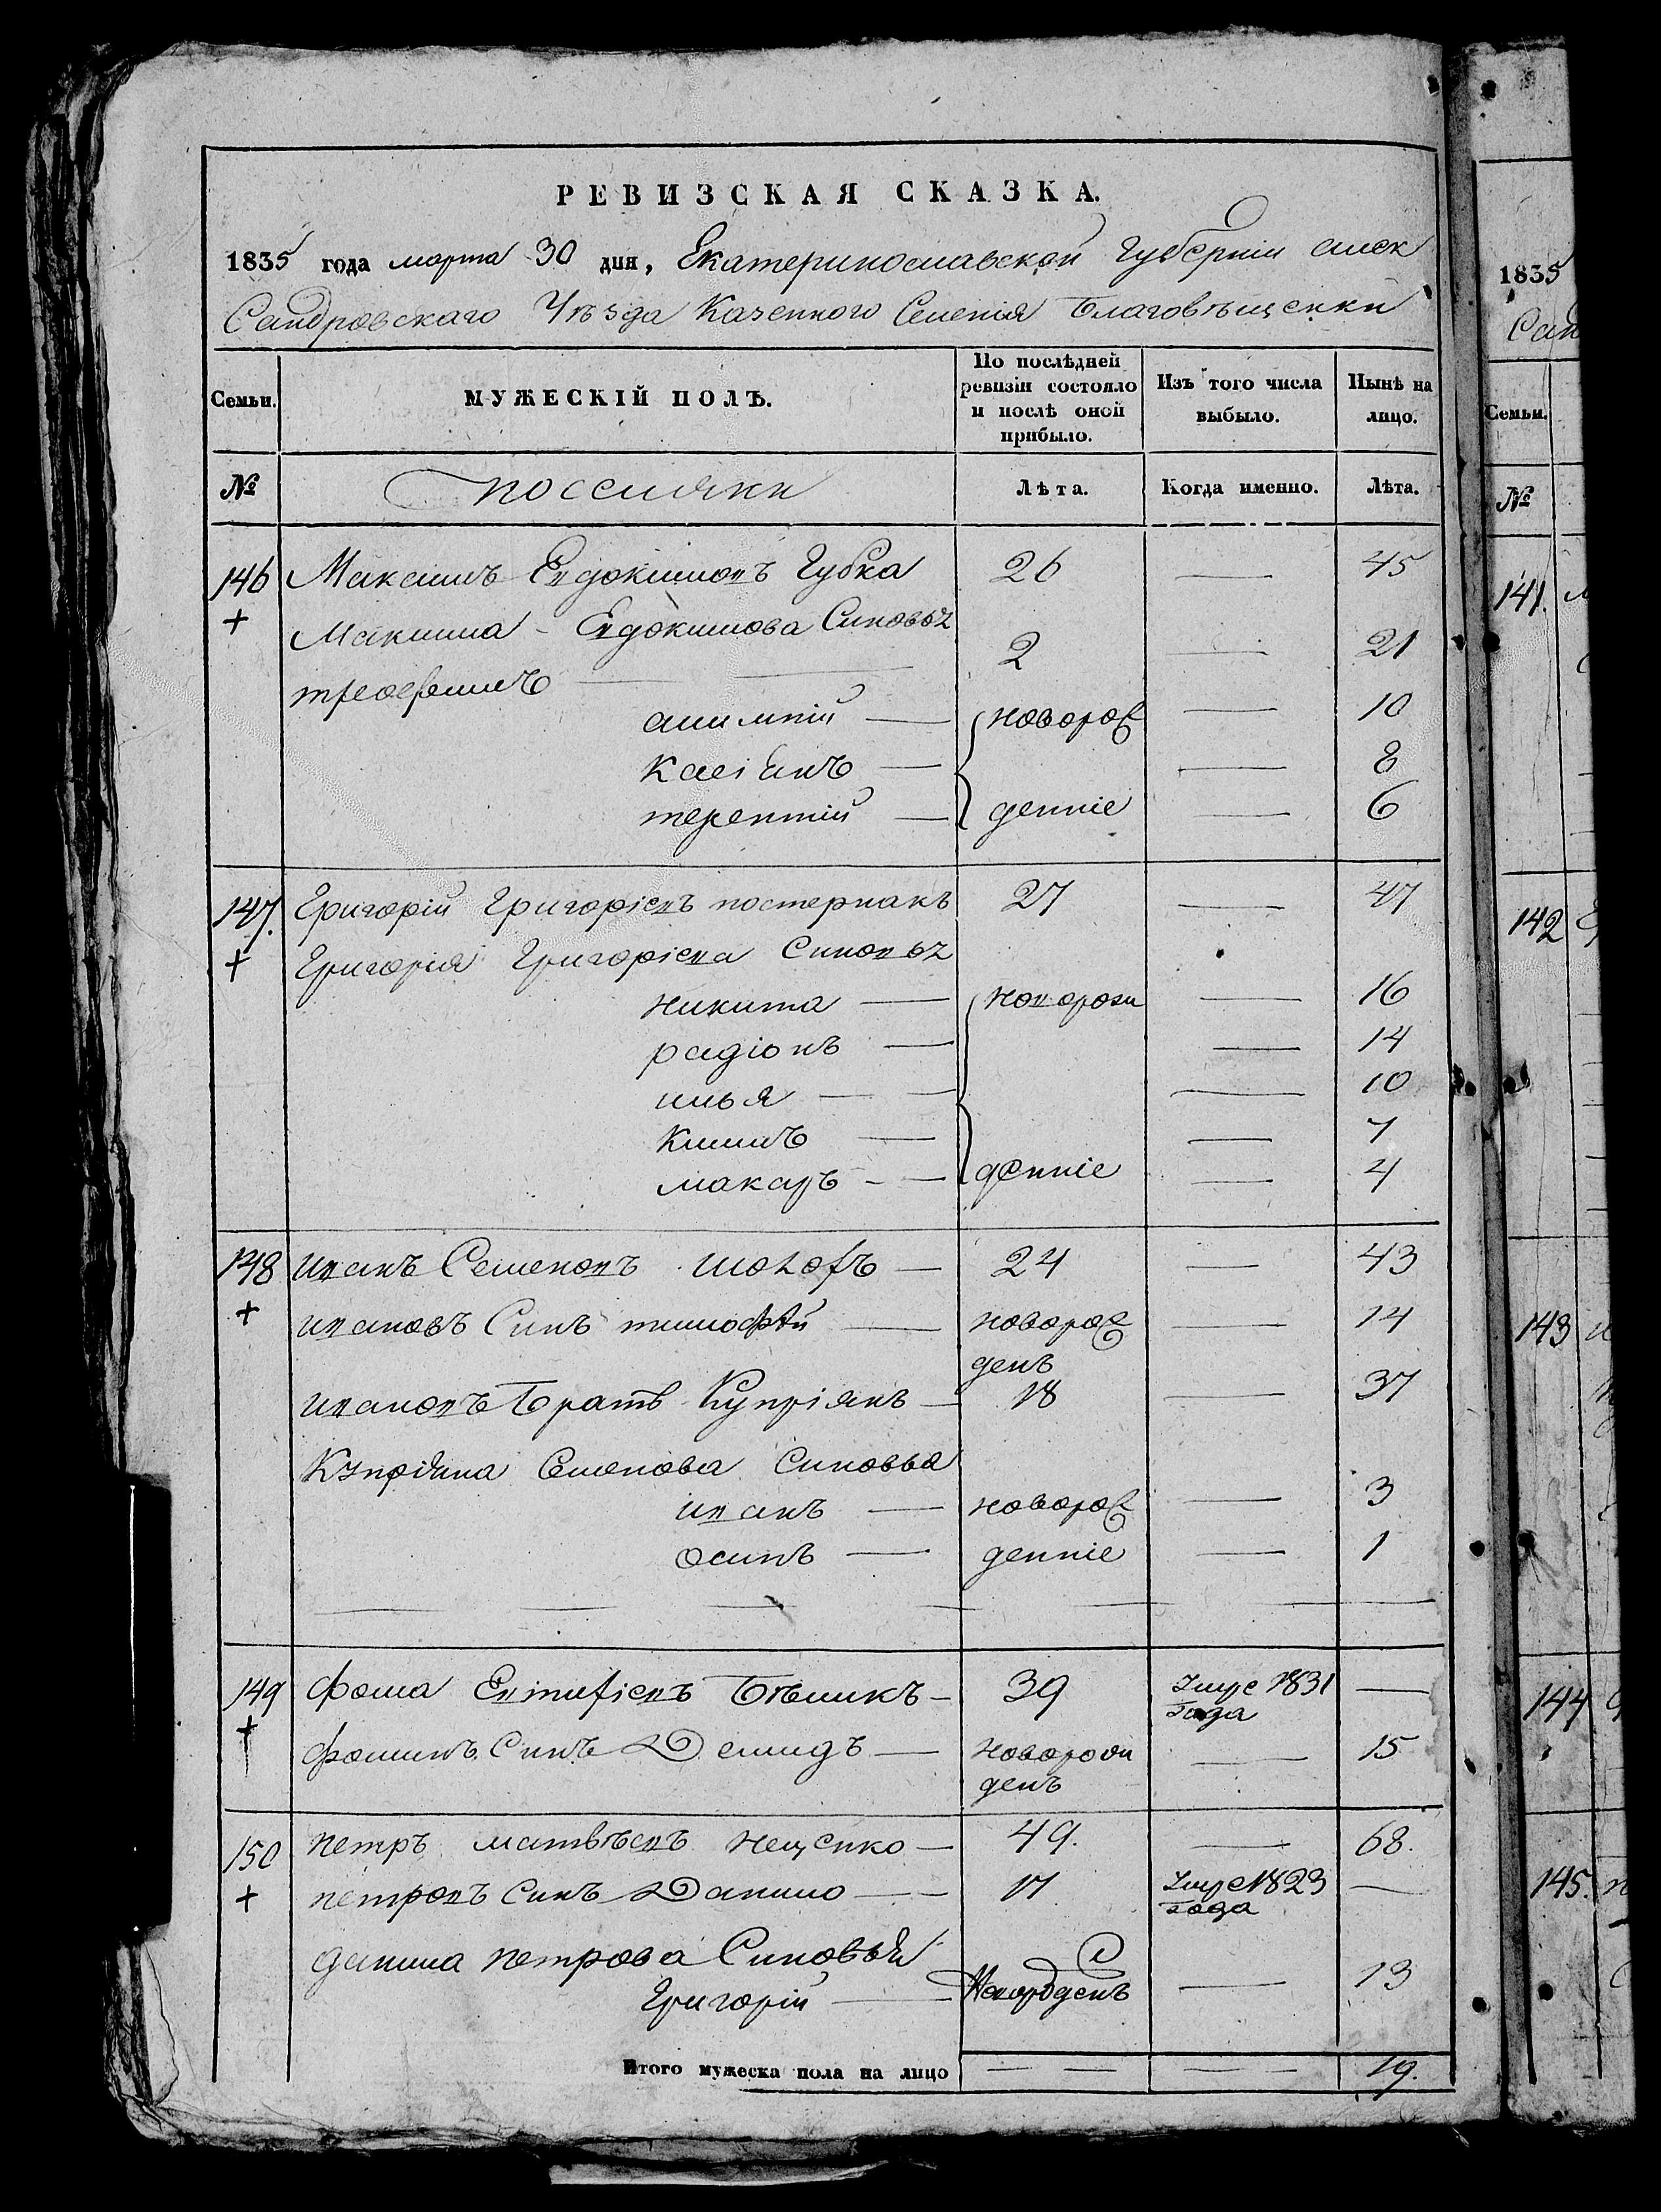 РЕВИЗСКАЯ СКАЗКА.
1835 года марта 30 дня, Екатеринославской Губернiи алек
Сандровскаго Уѣзда Казенного Селенiя Благовѣщенки
Семьи.
МУЖЕСКIЙ ПОЛЪ.
По послѣдней ревизiи состояло и послѣ оной прибыло.
Изъ того числа выбыло.
Нынѣ на лицо.
№
поселяни
Лѣта.
Когда именно.
Лѣта.
146 Максимъ Евдокимовъ Губка 26 — 45
Максима Евдокимова Синовья
трофимъ 2 — 21
новорож — 10
Касiянъ — 8
терентiй денніе — 6
147. Григорiй Григорiевъ постернакъ 27 — 47
Григорiя Григорiева Синовья
никита новорож — 16
радiонъ — 14
илья — 10
Климъ — 7
макаръ денніе — 4
148 иванъ Семеновъ 24 — 43
ивановъ Синъ тимофѣй новорож — 14
денъ
ивановъ Братъ Купріянъ 18 — 37
Купріяна Семенова Синовья
иванъ новорож — 3
осипъ денніе — 1
149 фома Евтифiевъ Бѣликъ 39 Умре 1831 —
года
фоминъ Синъ Демидъ новорож — 15
денъ
150 петръ матвѣевъ нещенко 49. — 68.
петровъ Синъ Данило 17 Умре 1823 —
года
данила петрова Синовья
Григорiй Новорожденъ — 13
Итого мужеска пола на лицо — — — 19.
1835
Сан
Семьи.
№
141.
142
143
144
145.